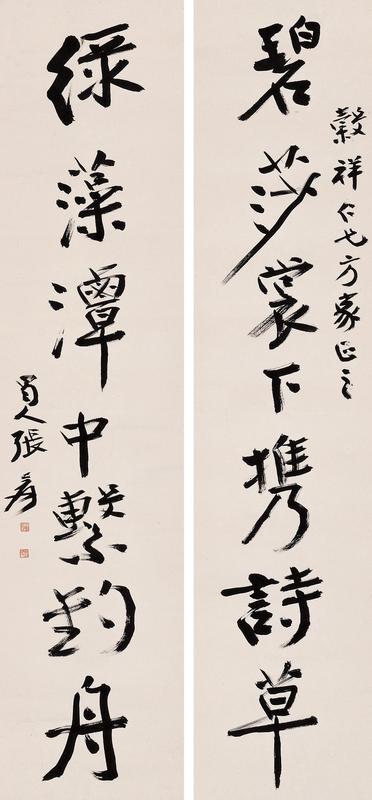 穀祥仁兄方家正之
碧莎裳下攜詩草
綠藻潭中繫釣舟
蜀人張爰